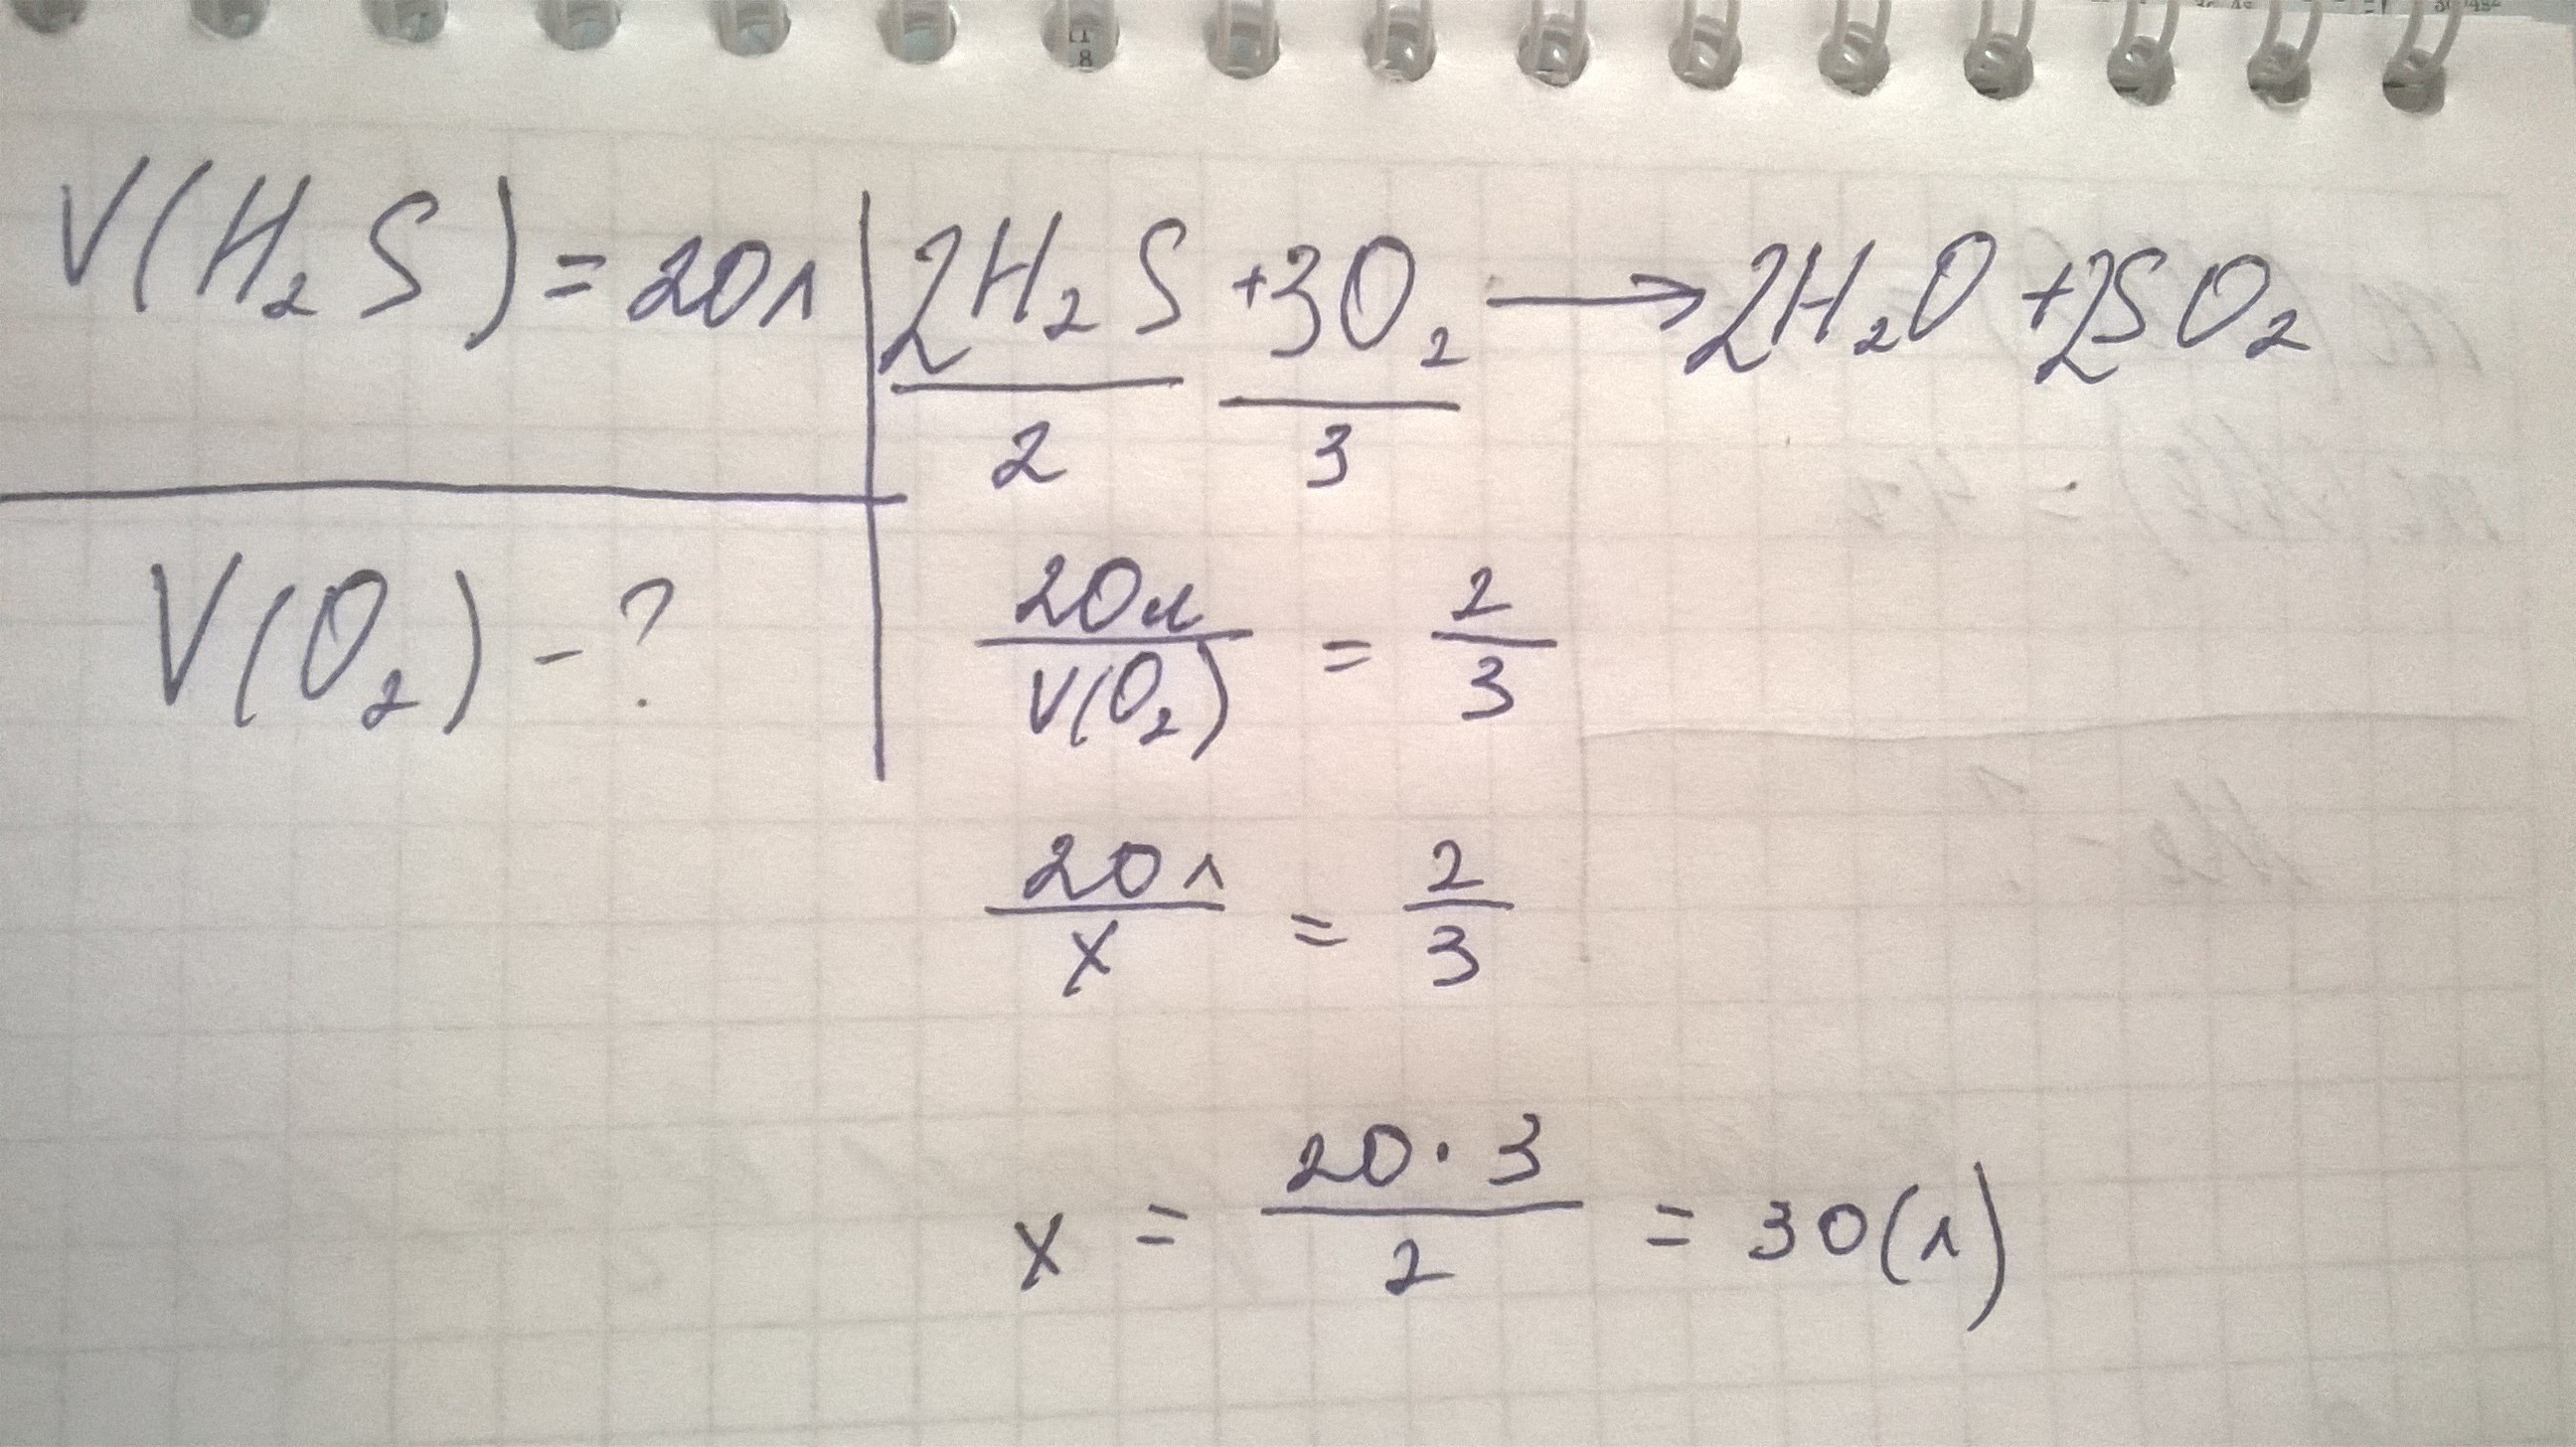 V(H₂S) = 20л
2H₂S + 3O₂ → 2H₂O + 2SO₂
2 3
V(O₂) - ?
20л / V(O₂) = 2 / 3
20л / x = 2 / 3
x = 20 · 3 / 2 = 30(л)